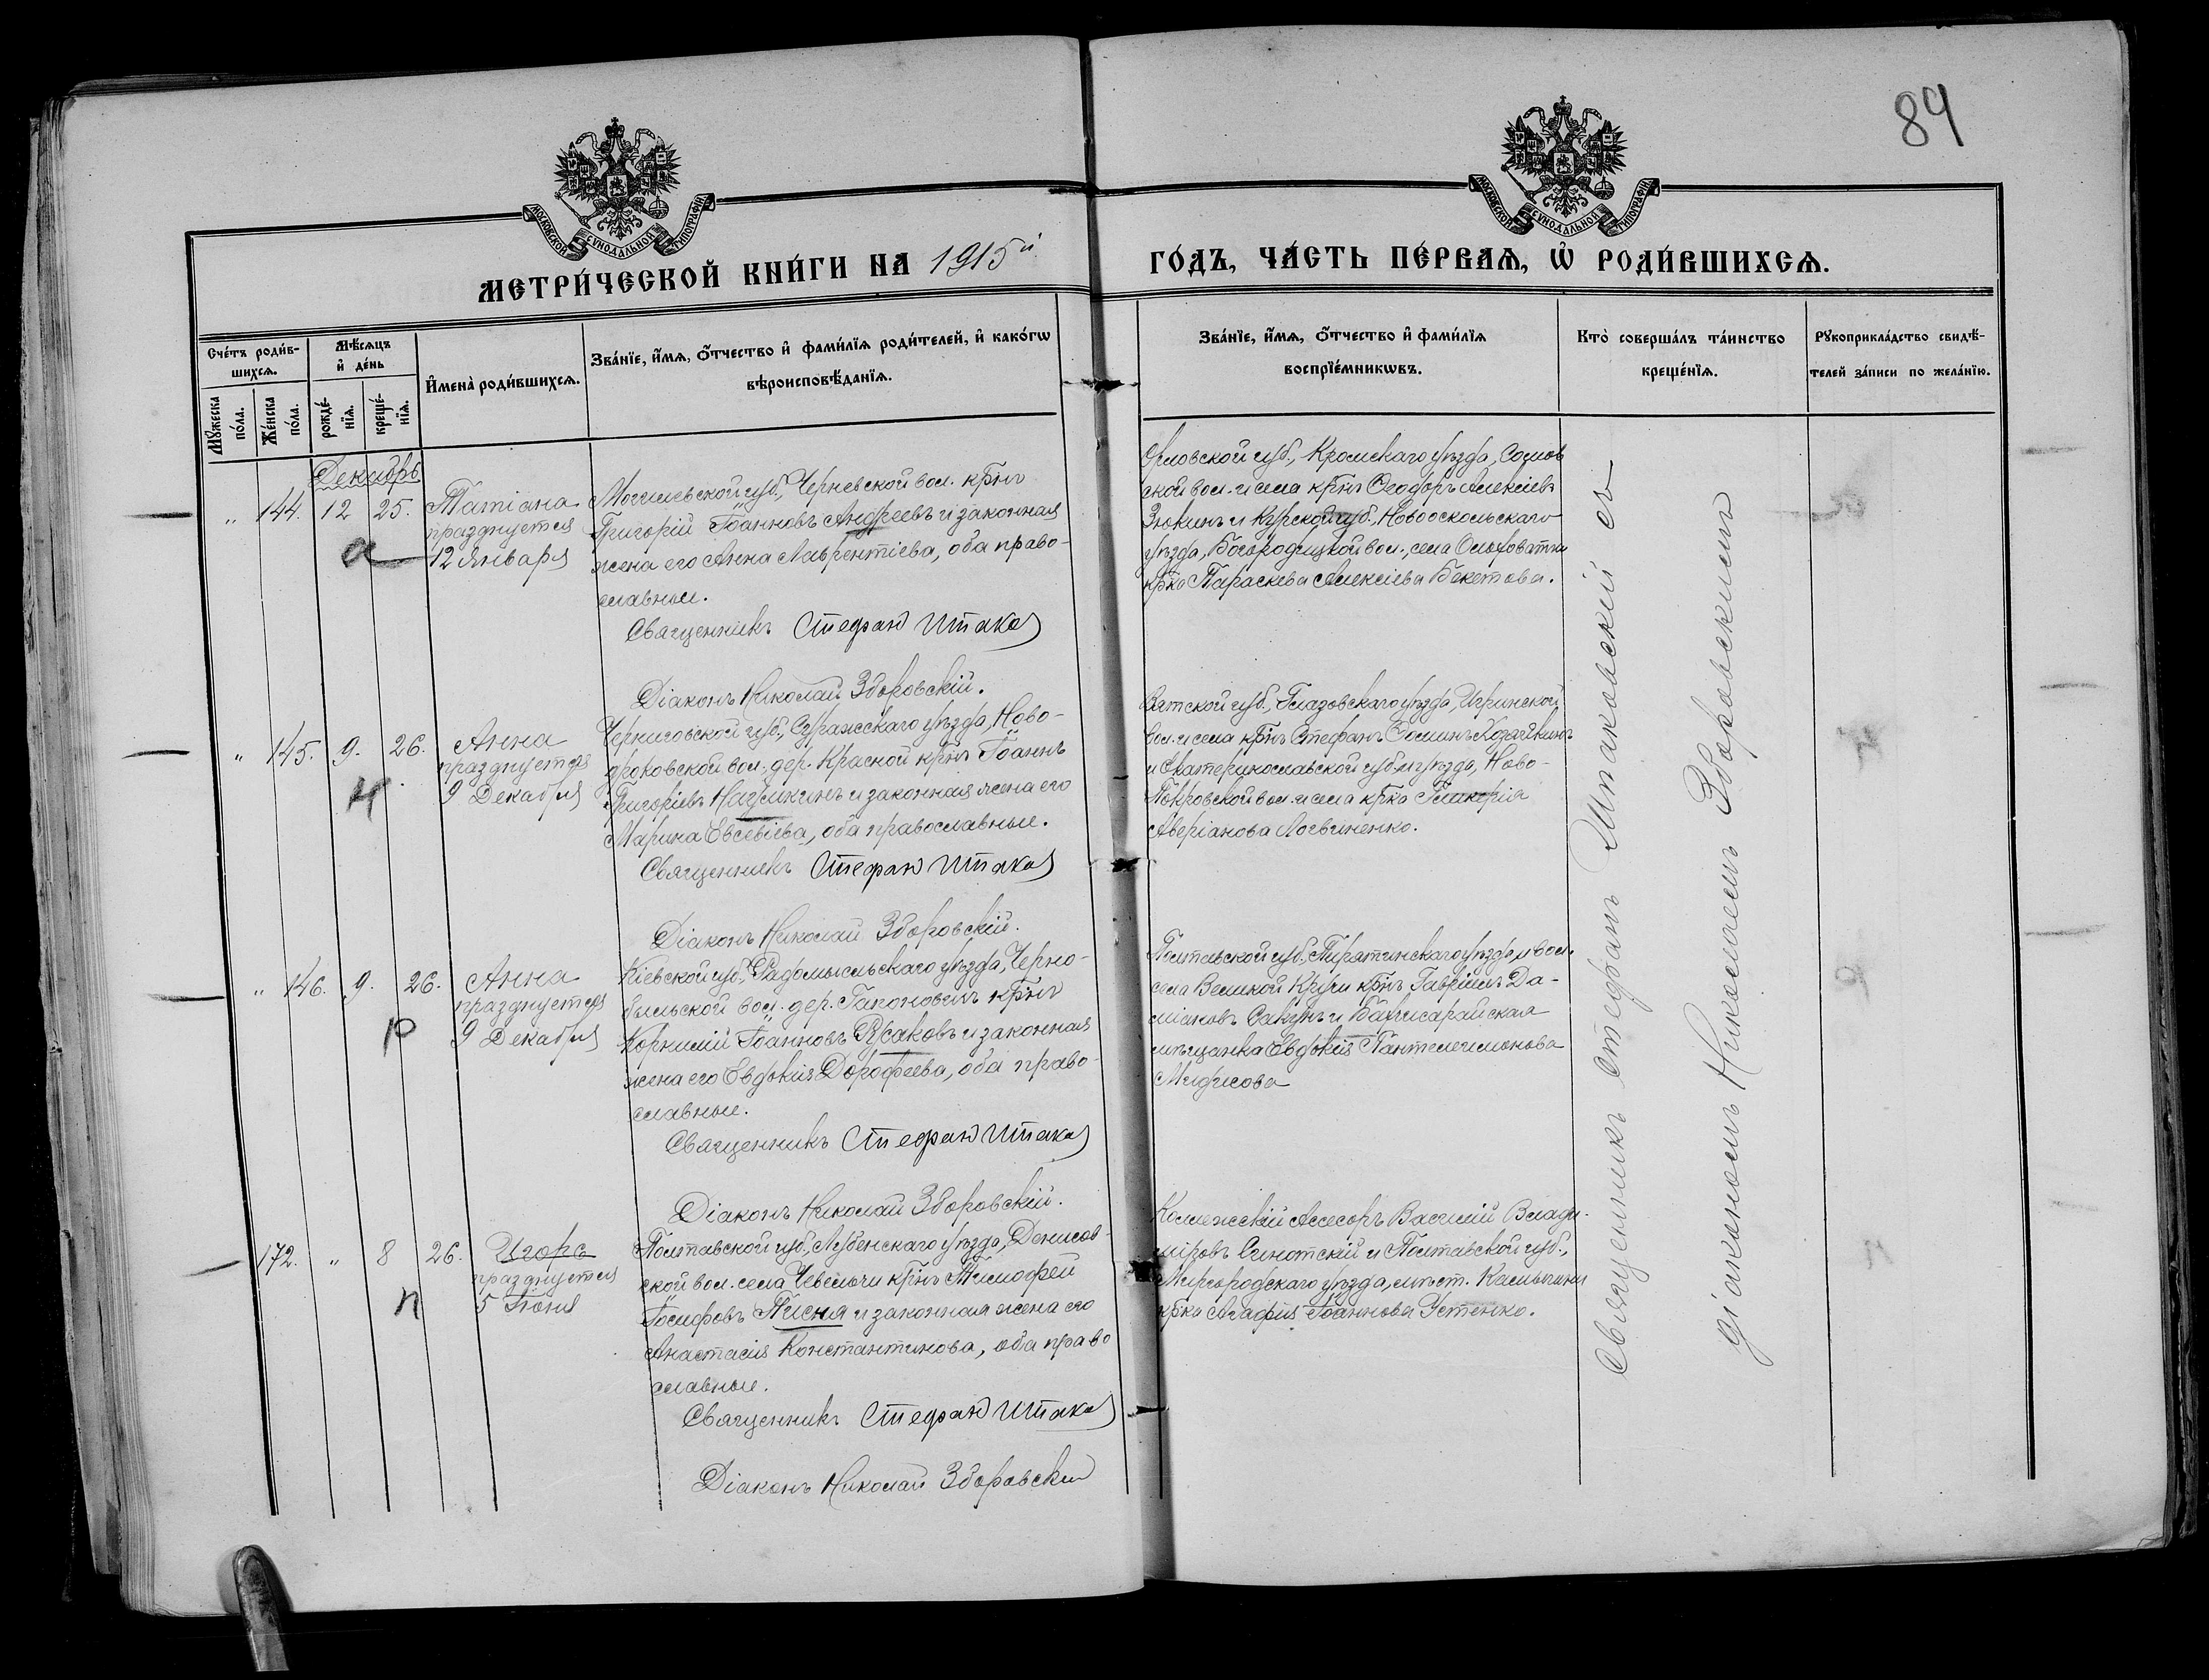 84
МОСКОВСКОЙ СѴНОДАЛЬНОЙ ТИПОГРАФІИ
МОСКОВСКОЙ СѴНОДАЛЬНОЙ ТИПОГРАФІИ
МЕТРИ́ЧЕСКОЙ КНИ́ГИ НА 1915й
ГО́ДЪ, ЧА́СТЬ ПЕ́РВАѦ, Ѡ҆ РОДИ́ВШИХСѦ.
Сче́тъ роди́в-
шихсѧ.
Мꙋ́жеска по́ла.
Же́нска по́ла.
Мѣ́сѧцъ
и҆ де́нь
рожде́-
нїѧ.
креще́-
нїѧ.
И҆мена̀ роди́вшихсѧ.
Зва́нїе, и҆́мѧ, ѻ҆́тчество и҆ фами́лїѧ роди́телей, и҆ како́гѡ
вѣроисповѣ́данїѧ.
Зва́нїе, и҆́мѧ, ѻ҆́тчество и҆ фами́лїѧ
воспрїе́мникѡвъ.
Кто̀ соверша́лъ та́инство
креще́нїѧ.
Рꙋкоприкла́дство свидѣ́-
телей за́писи по жела́нїю.
Декабрь
" 144. 12 25. Татіана
празднуется
12 Января
а
Могилевской губ., Черневской вол. крнъ
Григорій Іоанновъ Андреевъ и законная
жена его Анна Лаврентіева, оба право-
славные.
Священникъ Стефан Шпаков
Діаконъ Николай Зборовскій.
Орловской губ., Кромскаго уѣзда, Сомов
ской вол. и села крнъ Ѳеодоръ Алексіевъ
Зюкинъ и Курской губ., Новооскольскаго
уѣзда, Богородицкой вол., села Ольховатки
крка Параскева Алексіева Бекетова.
" 145. 9. 26. Анна
празднуется
9 Декабря
Н
Черниговской губ., Суражскаго уѣзда, Ново-
дроковской вол., дер. Красной крнъ Іоаннъ
Григоріевъ и законная жена его
Марина Евсевіева, оба православные.
Священникъ Стефан Шпаков
Діаконъ Николай Зборовскій.
Вятской губ., Глазовскаго уѣзда, Игринской
вол. и села крнъ Стефанъ Козяйкинъ
и Екатеринославской губ. и уѣзда, Ново-
Покровской вол. и села крка Гликерія
Аверіанова Логвиненко.
" 146. 9. 26. Анна
празднуется
9 Декабря
Р
Кіевской губ., Радомысльскаго уѣзда, Черно-
быльской вол. дер. Гапоновичъ крнъ
Корнилій Іоанновъ Русаковъ и законная
жена его Евдокія Дорофеева, оба право-
славные.
Священникъ Стефан Шпаков
Діаконъ Николай Зборовскій.
Полтавской губ., Пирятинскаго уѣзда и вол.
села Великой Кручи крнъ Гавріилъ Да-
міановъ Сакунъ и Бахчисарайская
мѣщанка Евдокія Пантелеимонова
172. " 8 26. Игорь
празднуется
5 Іюня
П
Полтавской губ., Лубенскаго уѣзда, Денисов-
ской вол. села Чевельчи крнъ Тимофей
Іосифовъ Писня и законная жена его
Анастасія Константинова, оба право
славные.
Священникъ Стефан Шпаков
Діаконъ Николай Зборовскій
Коллежскій Ассесоръ Василій Влади-
міровъ Синотскій и Полтавской губ.,
Миргородскаго уѣзда, мѣст. Камышни
крка Агафія Іоаннова Устенко.
Священникъ Стефанъ Шпаковскій съ
діакономъ Николаемъ Зборовскимъ